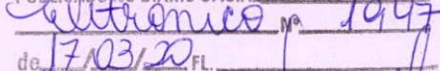 eletrônico Nº 1947
de 17/03/20 FL. 11